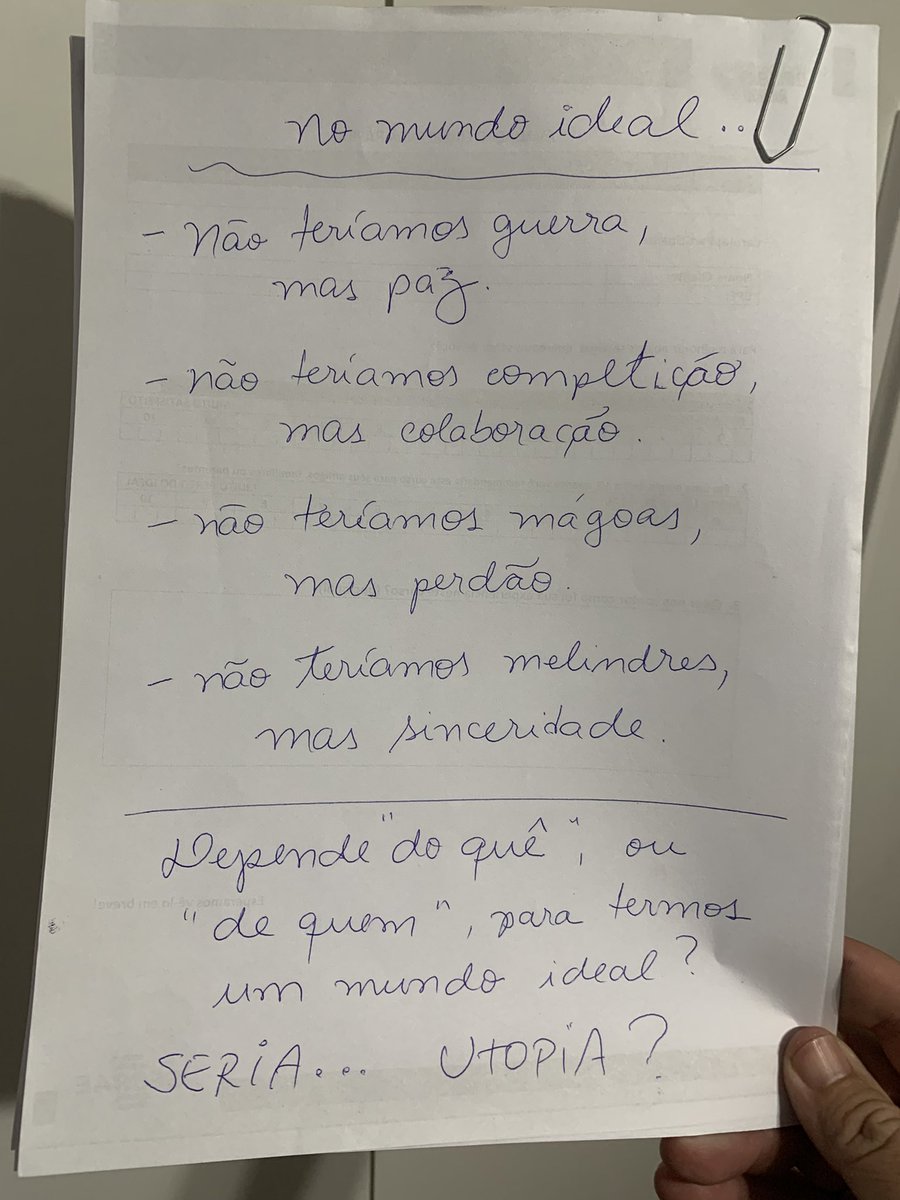 No mundo ideal...
- Não teríamos guerra,
mas paz.
- não teríamos competição,
mas colaboração.
- não teríamos mágoas,
mas perdão.
- não teríamos melindres,
mas sinceridade.
Depende "do quê", ou
"de quem", para termos
um mundo ideal?
SERIA... UTOPIA?
Esperamos vê-lo em breve!